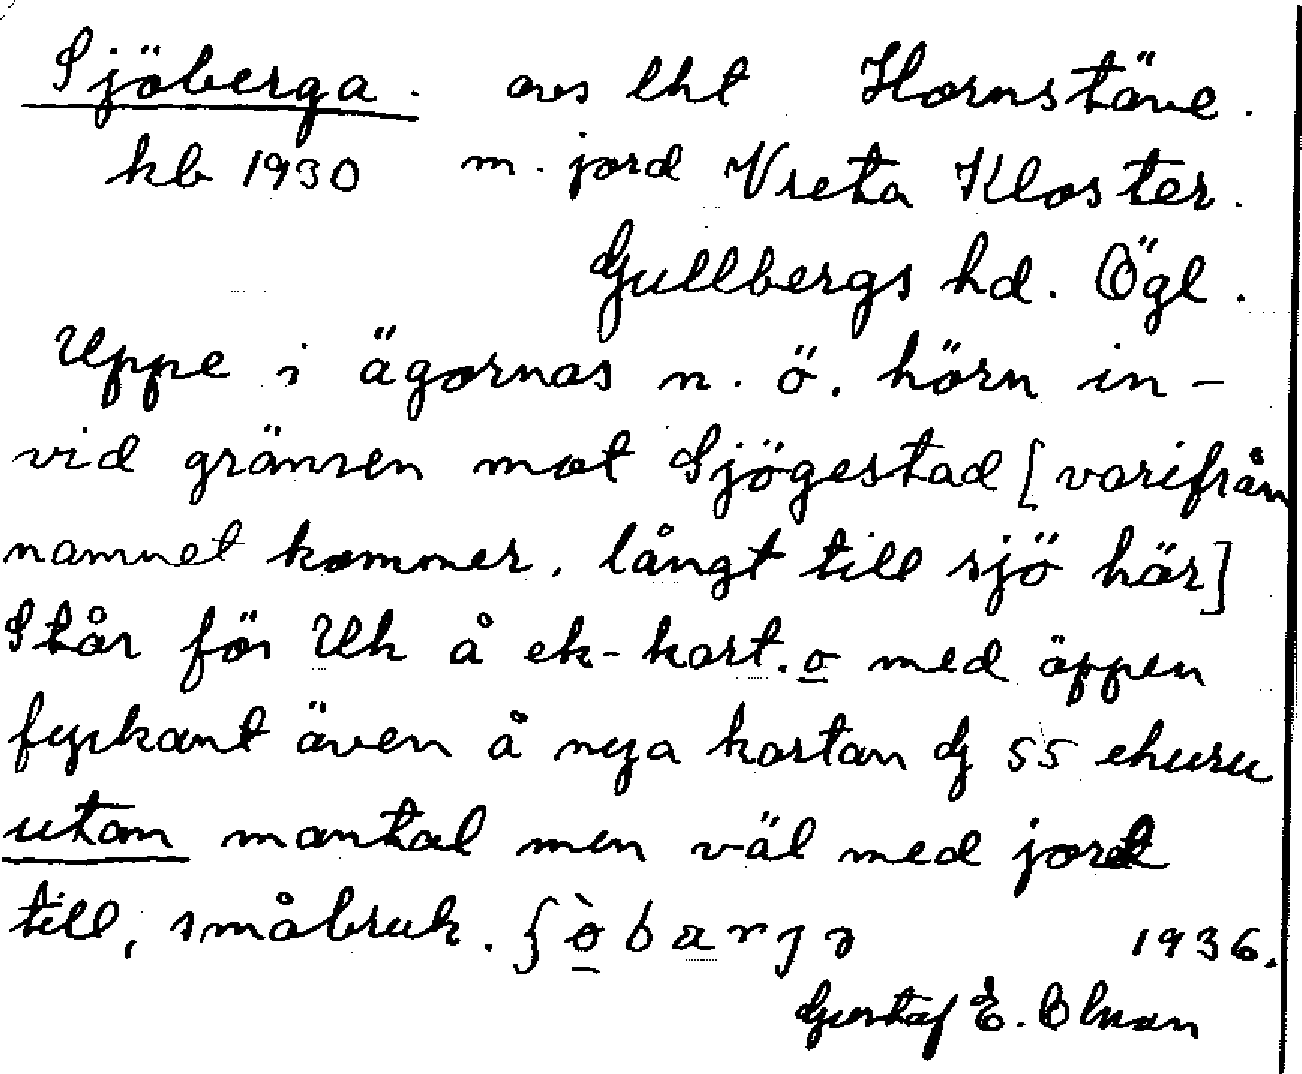 Sjöberga. avs lht Hornstäve.
kb 1930 m. jord Vreta Kloster.
Gullbergs hd. Ögl.
Uppe i ägornas n. ö. hörn in-
vid gränsen mot Sjögestad [varifrån
namnet kommer. långt till sjö här]
Står för Uh å ek-kart. o med öppen
fyrkant även å nya kartan dj 55 ehuru
utom mantal men väl med jord
till, småbruk. ʃòbarjə 1936.
Gustaf E. Olsson